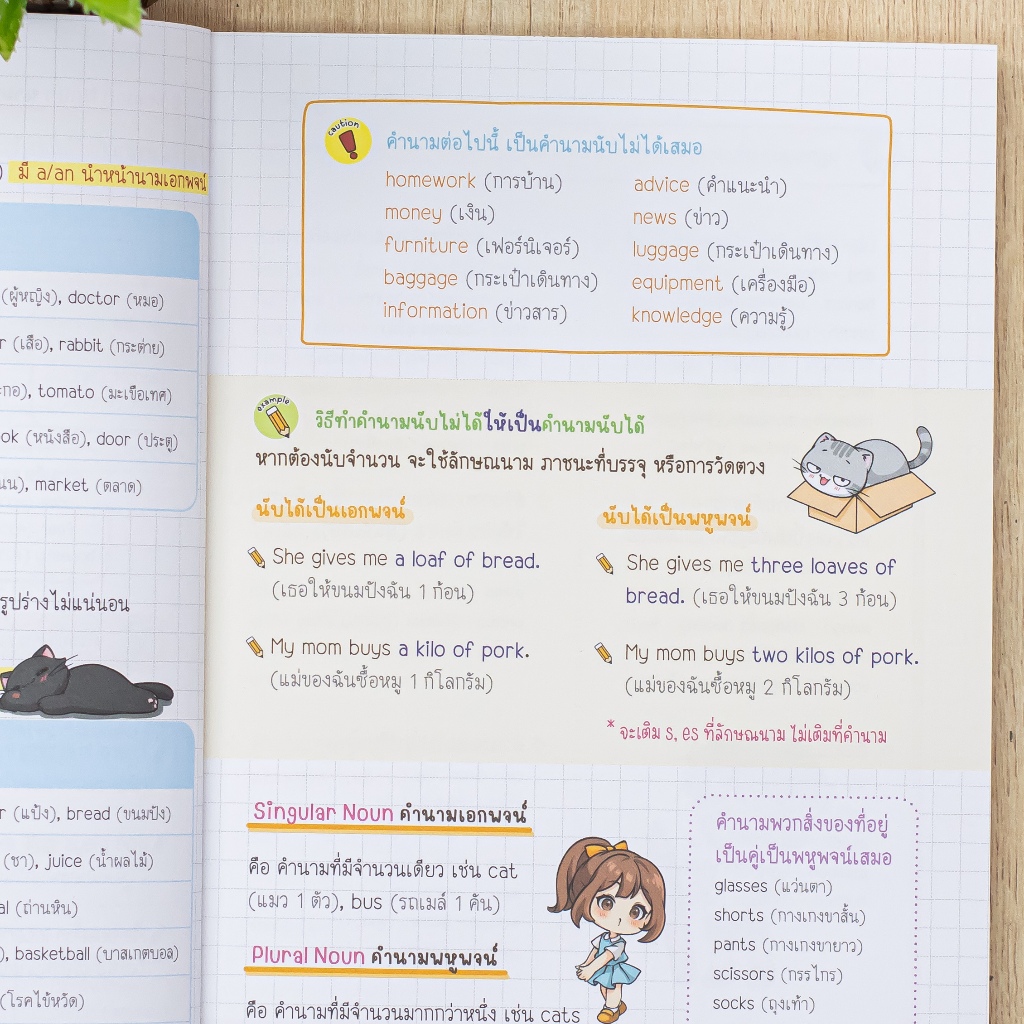 มี a/an นำหน้านามเอกพจน์
(ผู้หญิง), doctor (หมอ)
(เสือ), rabbit (กระต่าย)
tomato (มะเขือเทศ)
(หนังสือ), door (ประตู)
market (ตลาด)
รูปร่างไม่แน่นอน
(แป้ง), bread (ขนมปัง)
(ชา), juice (น้ำผลไม้)
(ถ่านหิน)
basketball (บาสเกตบอล)
(โรคไข้หวัด)
caution
คำนามต่อไปนี้ เป็นคำนามนับไม่ได้เสมอ
homework (การบ้าน) advice (คำแนะนำ)
money (เงิน) news (ข่าว)
furniture (เฟอร์นิเจอร์) luggage (กระเป๋าเดินทาง)
baggage (กระเป๋าเดินทาง) equipment (เครื่องมือ)
information (ข่าวสาร) knowledge (ความรู้)
example
วิธีทำคำนามนับไม่ได้ให้เป็นคำนามนับได้
หากต้องนับจำนวน จะใช้ลักษณนาม ภาชนะที่บรรจุ หรือการวัดตวง
นับได้เป็นเอกพจน์
She gives me a loaf of bread.
(เธอให้ขนมปังฉัน 1 ก้อน)
My mom buys a kilo of pork.
(แม่ของฉันซื้อหมู 1 กิโลกรัม)
นับได้เป็นพหูพจน์
She gives me three loaves of
bread. (เธอให้ขนมปังฉัน 3 ก้อน)
My mom buys two kilos of pork.
(แม่ของฉันซื้อหมู 2 กิโลกรัม)
* จะเติม s, es ที่ลักษณนาม ไม่เติมที่คำนาม
Singular Noun คำนามเอกพจน์
คือ คำนามที่มีจำนวนเดียว เช่น cat
(แมว 1 ตัว), bus (รถเมล์ 1 คัน)
Plural Noun คำนามพหูพจน์
คือ คำนามที่มีจำนวนมากกว่าหนึ่ง เช่น cats
คำนามพวกสิ่งของที่อยู่
เป็นคู่เป็นพหูพจน์เสมอ
glasses (แว่นตา)
shorts (กางเกงขาสั้น)
pants (กางเกงขายาว)
scissors (กรรไกร)
socks (ถุงเท้า)